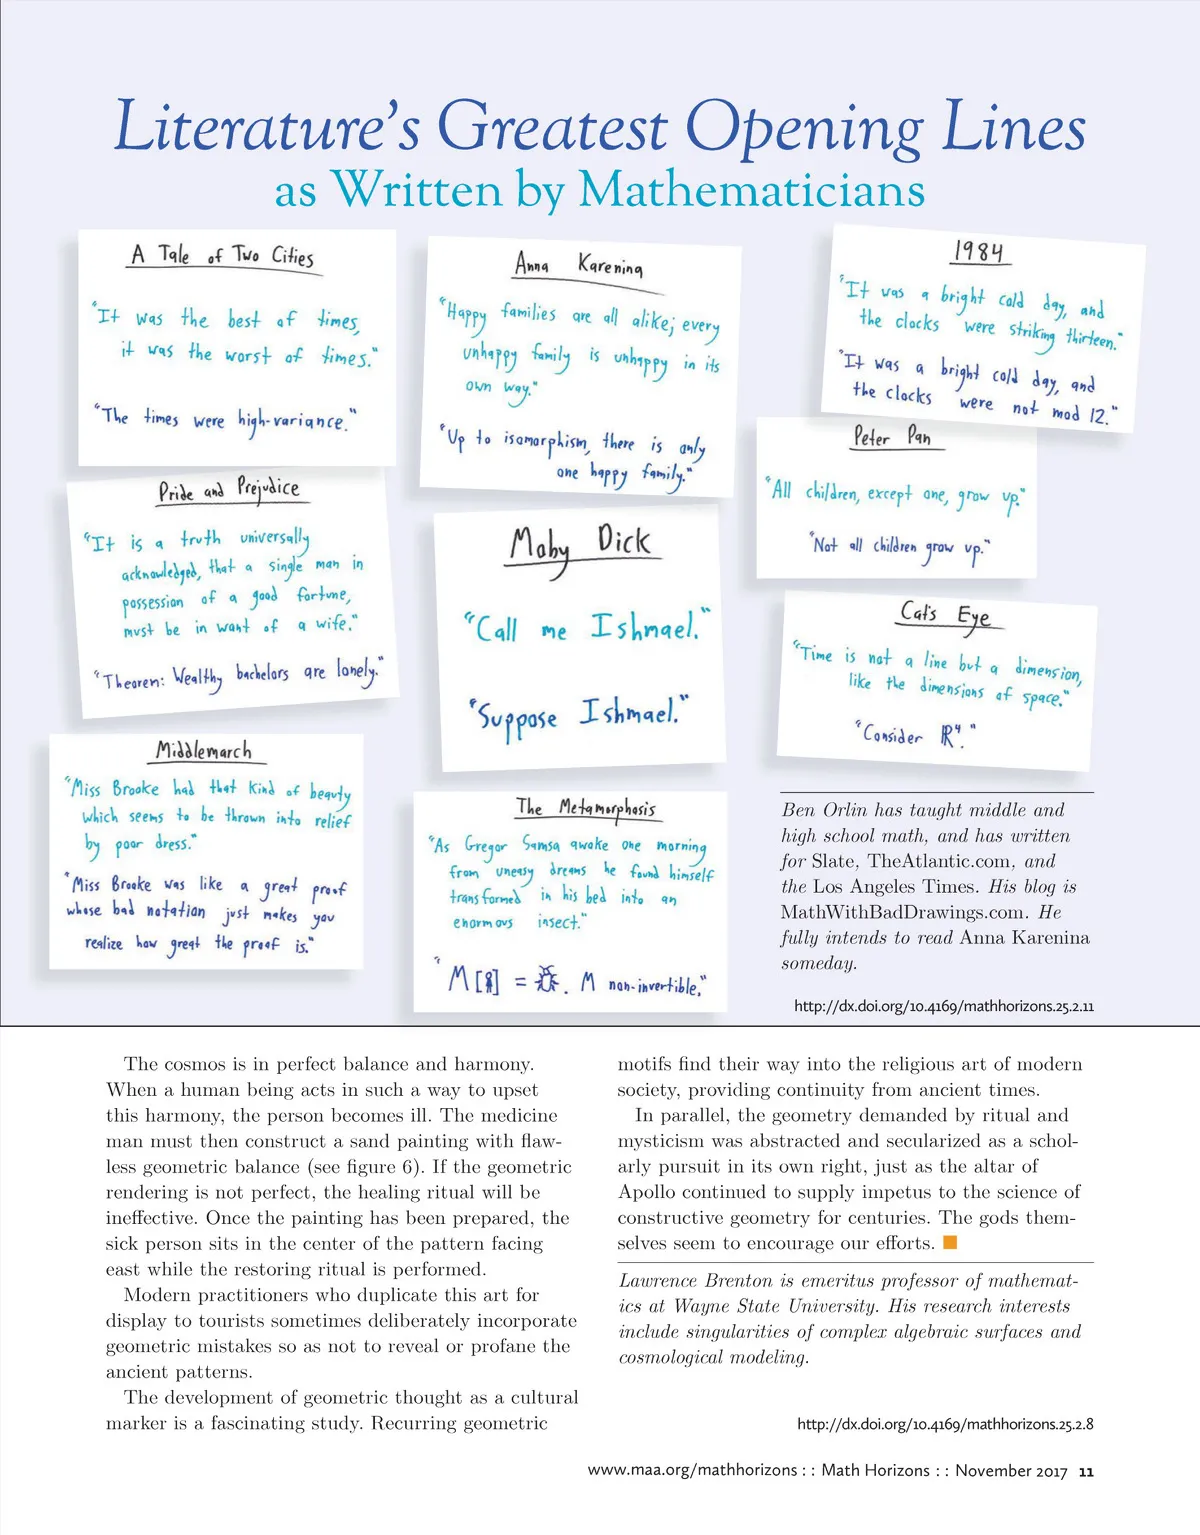 Literature's Greatest Opening Lines
as Written by Mathematicians
A Tale of Two Cities
"It was the best of times,
it was the worst of times."
"The times were high-variance."
Anna Karenina
"Happy families are all alike; every
unhappy family is unhappy in its
own way."
"Up to isomorphism, there is only
one happy family."
1984
"It was a bright cold day, and
the clocks were striking thirteen."
"It was a bright cold day, and
the clocks were not mod 12."
Peter Pan
"All children, except one, grow up."
"Not all children grow up."
Pride and Prejudice
"It is a truth universally
acknowledged, that a single man in
possession of a good fortune,
must be in want of a wife."
"Theorem: Wealthy bachelors are lonely."
Moby Dick
"Call me Ishmael."
"Suppose Ishmael."
Cat's Eye
"Time is not a line but a dimension,
like the dimensions of space."
"Consider ℝ⁴."
Middlemarch
"Miss Brooke had that kind of beauty
which seems to be thrown into relief
by poor dress."
"Miss Brooke was like a great proof
whose bad notation just makes you
realize how great the proof is."
The Metamorphosis
"As Gregor Samsa awoke one morning
from uneasy dreams he found himself
transformed in his bed into an
enormous insect."
"M[ ] = . M non-invertible."
Ben Orlin has taught middle and
high school math, and has written
for Slate, TheAtlantic.com, and
the Los Angeles Times. His blog is
MathWithBadDrawings.com. He
fully intends to read Anna Karenina
someday.
http://dx.doi.org/10.4169/mathhorizons.25.2.11
The cosmos is in perfect balance and harmony.
When a human being acts in such a way to upset
this harmony, the person becomes ill. The medicine
man must then construct a sand painting with flaw-
less geometric balance (see figure 6). If the geometric
rendering is not perfect, the healing ritual will be
ineffective. Once the painting has been prepared, the
sick person sits in the center of the pattern facing
east while the restoring ritual is performed.
Modern practitioners who duplicate this art for
display to tourists sometimes deliberately incorporate
geometric mistakes so as not to reveal or profane the
ancient patterns.
The development of geometric thought as a cultural
marker is a fascinating study. Recurring geometric
motifs find their way into the religious art of modern
society, providing continuity from ancient times.
In parallel, the geometry demanded by ritual and
mysticism was abstracted and secularized as a schol-
arly pursuit in its own right, just as the altar of
Apollo continued to supply impetus to the science of
constructive geometry for centuries. The gods them-
selves seem to encourage our efforts.
Lawrence Brenton is emeritus professor of mathemat-
ics at Wayne State University. His research interests
include singularities of complex algebraic surfaces and
cosmological modeling.
http://dx.doi.org/10.4169/mathhorizons.25.2.8
www.maa.org/mathhorizons : : Math Horizons : : November 2017 11